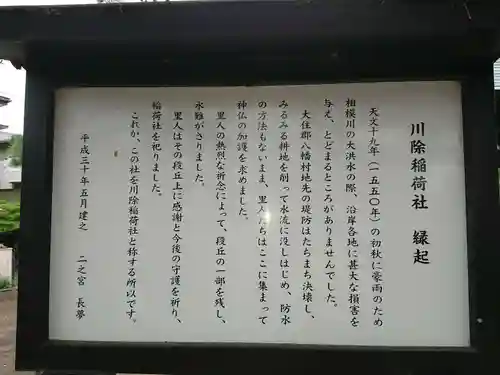 川除稲荷社　縁起
天文十九年（一五五〇年）の初秋に豪雨のため
相模川の大洪水の際、沿岸各地に甚大な損害を
与え、とどまるところがありませんでした。
大住郡八幡村地先の堤防はたちまち決壊し、
みるみる耕地を削って水流に没しはじめ、防水
の方法もないまま、里人たちはここに集まって
神仏の加護を求めました。
里人の熱烈な祈念によって、段丘の一部を残し、
水難がさりました。
里人はその段丘上に感謝と今後の守護を祈り、
稲荷社を祀りました。
これが、この社を川除稲荷社と称する所以です。
平成三十年五月建之　二之宮　長夢